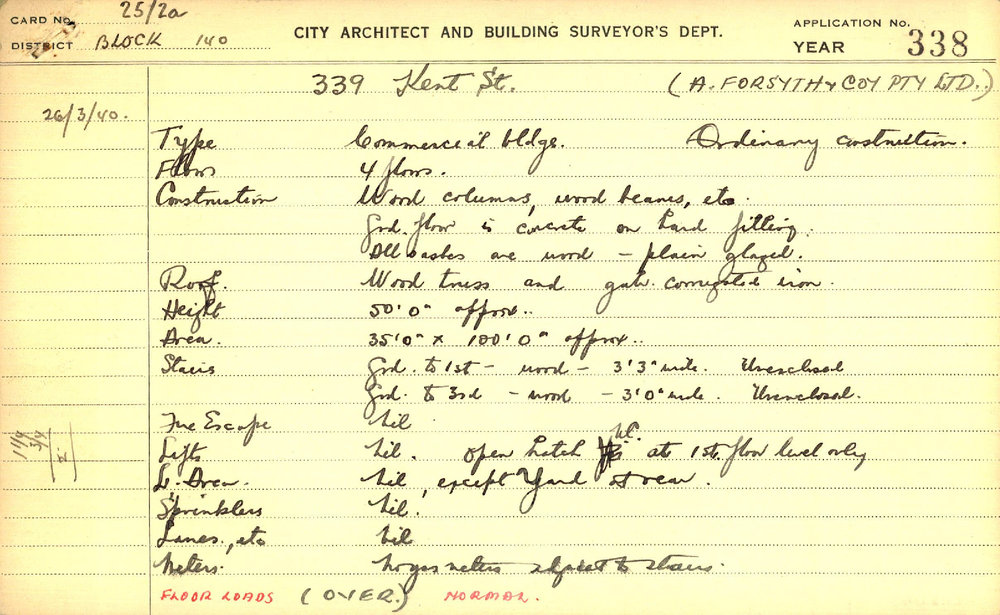 CARD No. 25/2a
CITY ARCHITECT AND BUILDING SURVEYOR'S DEPT.
APPLICATION No.
DISTRICT BLOCK 140
YEAR 338
339 Kent St. (A. FORSYTH & COY PTY LTD.)
26/3/40.
Type Commercial bldge. Ordinary construction.
Floors 4 floors.
Construction Wood columns, wood beams, etc.
Grd. floor is concrete on hard filling.
All sashes are wood - plain glazed.
Roof. Wood truss and galv. corrugated iron.
Height 50'0" approx..
Area. 35'0" x 100'0" approx..
Stairs Grd. to 1st - wood - 3'3" wide. Unenclosed
Grd. to 3rd - wood - 3'0" wide. Unenclosed.
Fire Escape Nil
Lifts Nil. open hatch at 1st. floor level only
L. Area. Nil, except Yard at rear.
Sprinklers Nil.
Lanes, etc Nil
Meters. No gas meters adjacent to stairs.
FLOOR LOADS (OVER.) NORMAL.